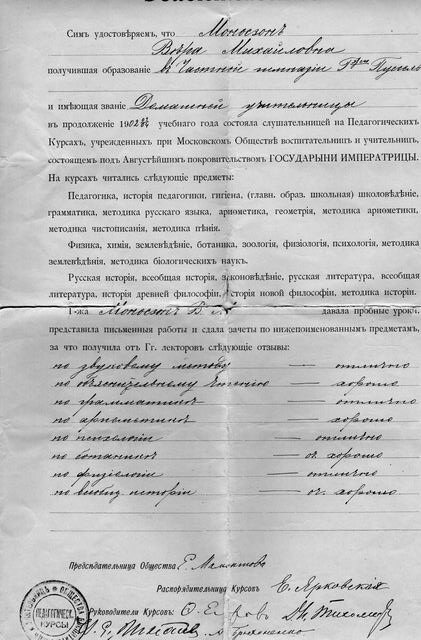 Симъ удостовѣряемъ, что Моносзонъ
Вѣра Михайловна
получившая образованіе въ Частной гимназіи Г-жи Пуссель
и имѣющая званіе Домашней учительницы
въ продолженіе 1902 учебнаго года состояла слушательницей на Педагогическихъ
Курсахъ, учрежденныхъ при Московскомъ Обществѣ воспитательницъ и учительницъ,
состоящемъ подъ Августѣйшимъ покровительствомъ ГОСУДАРЫНИ ИМПЕРАТРИЦЫ.
На курсахъ читались слѣдующіе предметы:
Педагогика, исторія педагогики, гигіена, (главн. образ. школьная) школовѣдѣніе,
грамматика, методика русскаго языка, ариѳметика, геометрія, методика ариѳметики,
методика чистописанія, методика пѣнія.
Физика, химія, землевѣдѣніе, ботаника, зоологія, физіологія, психологія, методика
землевѣдѣнія, методика біологическихъ наукъ.
Русская исторія, всеобщая исторія, законовѣдѣніе, русская литература, всеобщая
литература, исторія древней философіи, исторія новой философіи, методика исторіи.
Г-жа Моносзонъ В. М. давала пробные уроки,
представила письменныя работы и сдала зачеты по нижепоименованнымъ предметамъ,
за что получила отъ Гг. лекторовъ слѣдующіе отзывы:
по звуковому методу — отлично
по объяснительному чтенію — хорошо
по грамматикѣ — отлично
по ариѳметикѣ — хорошо
по психологіи — отлично
по ботаникѣ — оч. хорошо
по физіологіи — отлично
по всеобщ. исторіи — оч. хорошо.
Предсѣдательница Общества Е.
Распорядительница Курсовъ Е. Ярковская
Руководители Курсовъ: Д. Тихомировъ
ПЕДАГОГИЧЕСК.
КУРСЫ